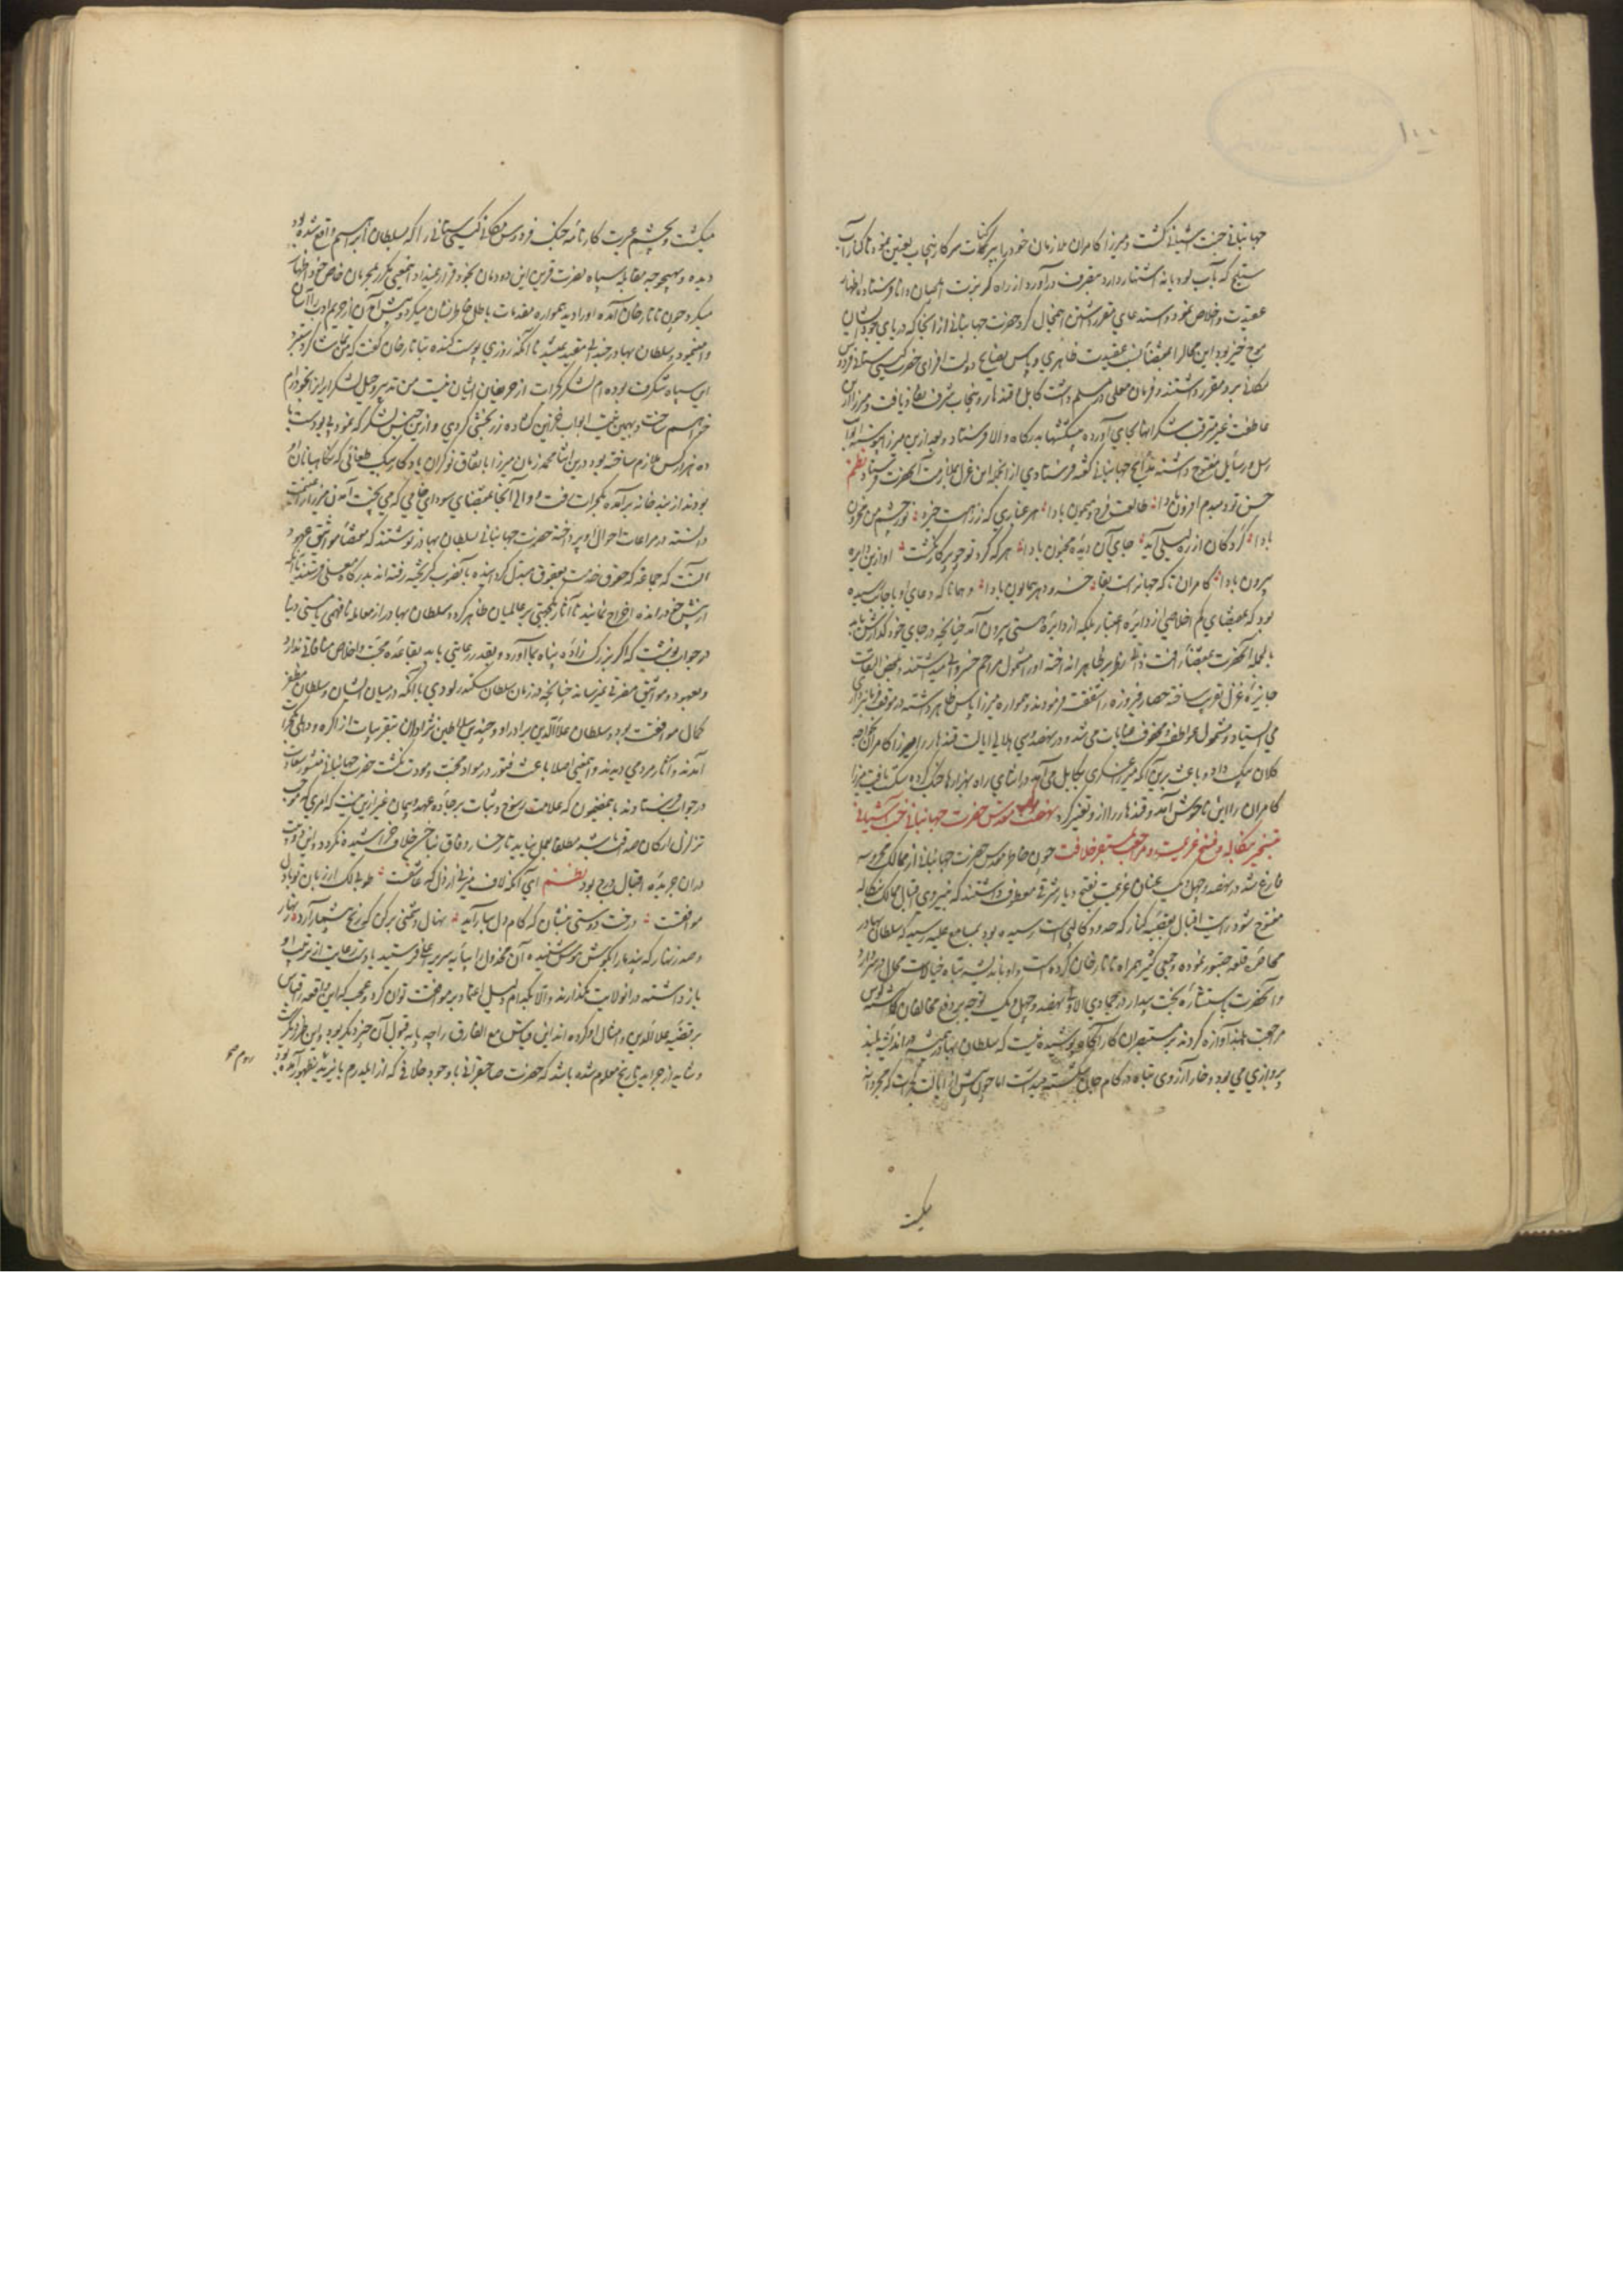 جهانبانی جنت آشیانی گشت و میرزا کامران ملازمان خود را بپرگنات سرکار پنجاب تعیین نمود تا کنار آب
ستلج که بآب لودیانه اشتهار دارد متصرف درآورد از راه گربزت ایلچیان دانا فرستاد و اظهار
عقیدت و اخلاص نمود و استدعای مقرر داشتن این محال کرد حضرت جهانبانی از آنجا که دریای جود ایشان
موج خیز بود این محال را بمقتضای عقیدت ظاهری و پاس نصایح دولت افزای حضرت گیتی ستانی فردوس
مکانی برو مقرر داشتند و فرمان معلی در مسلم داشت کابل و قندهار و پنجاب شرف نفاذ یافت و میرزا ازین
عاطفت غیر مترقب شکرانها بجای آورده پیشکشها بدرگاه والا فرستاد و بعد ازین میرزا پیوسته ابواب
رسل و رسایل مفتوح داشته مدایح جهانبانی گفته فرستادی از آنجمله این غزل بملازمت آنحضرت فرستاد نظم
حسن تو دمبدم افزون بادا طالعت فرخ و میمون بادا هر غباری که ز راهت خیزد نور چشم من محزون
بادا گرد کان از ره لیلی آید جای آن دیده مجنون بادا هر که گرد تو چو پرگار نگشت او ازین دایره
بیرون بادا کامران تا که جهانراست بقا خسرو دهر همایون بادا و همانا که دعای او باجابت رسیده
بود که بمقتضای کم اخلاصی از دایره اعتبار بلکه از دایره هستی بیرون آمد چنانچه در جای خود گذارش یابد
بالجمله آنحضرت بمقتضای رافت ذاتی نظر بر ظاهر انداخته او را مشمول مراحم خسروانی میداشتند و بمحض التفات
جایزه غزل تقریب ساخته حصار فیروزه را شفقت فرمودند و همواره میرزا پاس ظاهر داشته در موقف فرمانبرداری
می ایستاد و مشمول عواطف و محفوف عنایات می شد و در نهصد و سی هلالی ایالت قندهار را میرزا کامران بخواجه
کلان بیگ داد و باعث برین آنکه میرزا عسکری بکابل می آمد در اثنای راه بهزارها جنگ کرده شکست یافت میرزا
کامران را این ناخوش آمد و قندهار را ازو تغییر کرد نهضت مقدس حضرت جهانبانی جنت آشیانی
بتسخیر بنگاله و فسخ عزیمت و مراجعت بمستقر خلافت چون خاطر مقدس حضرت جهانبانی از ممالک محروسه
فارغ شد در نهصد و چهل و یک عنان عزیمت بفتح دیار شرقی معطوف داشتند که بنیروی اقبال ممالک بنگاله
مفتوح شود رایت اقبال بقصبه کنار که در حدود کالپی است رسیده بود بمسامع علیه رسید که سلطان بهادر
محاصره قلعه چیتور نموده و جمعی کثیر همراه تاتارخان کرده است و او باندیشه تباه خیالات محال در سر دارد
و آنحضرت باستشاره بخت بیدار در جمادی الاولی نهصد و چهل و یک توجه بر دفع مخالفان گماشته کوس
مراجعت بلند آوازه کردند بر مستبصران کارآگاه پوشیده نیست که سلطان بهادر همیشه در اندیشه بلند
پروازی می بود و خار آرزوی تباه در کام جان شکسته میداشت اما چون پیش از ایالت گجرات که مجردانه
میگشت
میگشت و بچشم عبرت کارنامه جنگ فردوس مکانی گیتی ستانی را که با سلطان ابراهیم واقع شده بود
دیده و بهیچوجه مقابله سپاه نصرت قرین این دودمان بخود قرار نمیداد و این معنی مکرر بمحرمان خاص خود اظهار
میکرد چون تاتارخان آمده او را دید همواره مقدمات باطل خاطرنشان میکرد و پیش آمدن از حریم ادب را آسان
وا مینمود و سلطان بهادر چندانی مقید نمیشد تا آنکه روزی پوست کنده بتاتارخان گفت که من تماشاگر دستبرد
این سپاه شگرف بوده ام لشکر گجرات از حریفان ایشان نیست من تدبیر و حیل لشکر ایران بخود رام
خواهم ساخت و بهمین نیت ابواب خزاین گشاده زربخشی کردی و ازین جنس لشکر که نمود بی بود است تا
ده هزار کس ملازم ساخته بود درین اثنا محمد زمان میرزا باتفاق نوکران یادگار بیگ طغائی که نگاهبانان او
بودند از بندخانه برآمده بگجرات رفت و والی آنجا بمقتضای سودای خامی که می پخت آمدن میرزا را غنیمت
دانسته در مراعات احوال او پرداخت حضرت جهانبانی بسلطان بهادر نوشتند که مقتضای مواثیق و عهود
آنست که جماعه که حقوق خدمت بعقوق مبدل گردانیده بآنصوب گریخته رفته اند بدرگاه معلی فرستند یا آنکه
از پیش خود رانده اخراج نمایند تا آثار یکجهتی بر عالمیان ظاهر گردد سلطان بهادر از معامله نافهمی یا مستی دنیا
در جواب نوشت که اگر بزرگ زاده پناه بما آورد و بقدر رعایتی یابد بقاعده محبت و اخلاص منافاتی ندارد
و بعهود و مواثیق مضرتی نمیرساند چنانچه در زمان سلطان سکندر لودی با آنکه در میان ایشان و سلطان مظفر
کمال موافقت بود و سلطان علاالدین برادر او و چندی سلاطین نژادان بتقریبات از آگره و دهلی بگجرات
آمدند و آثار مردمی دیدند و این معنی اصلا باعث فتور در مواد محبت و مودت نگشت حضرت جهانبانی منشور سعادت
در جواب فرستادند باین مضمون که علامت رسوخ و ثبات بر جاده عهد و پیمان غیر ازین نیست که امری که موجب
تزلزل ارکان صداقت باشد مطلقا بعمل نیاید تا رخسار وفاق بناخن خلاف خراشیده نگردد و این دو بیت
دران جریده اقبال درج بود نظم ای آنکه لاف میزنی از دل که عاشقست طوبی لک ار زبان تو با دل
موافقست درخت دوستی بنشان که کام دل ببار آرد نهال دشمنی برکن که رنج بیشمار آرد زنهار
و صد زنهار که پند مارا بگوش هوش شنیده آن مخذول را بپایه سریر اعلی فرستید یا دست رعایت از تربیت او
باز داشته در آنولایت نگذارند و الا بکدام دلیل اعتماد بر موافقت توان کرد و عجب که این واقعه را قیاس
بر قضیه علاالدین و امثال او کرده اند این قیاس مع الفارق را چه پایه قبول آن چیز دیگر بود و این طور دیگر است
و شاید از جراید تاریخ معلوم شده باشد که حضرت صاحبقرانی با وجود خلافی که از ایلدرم بایزید بظهور آمده بود